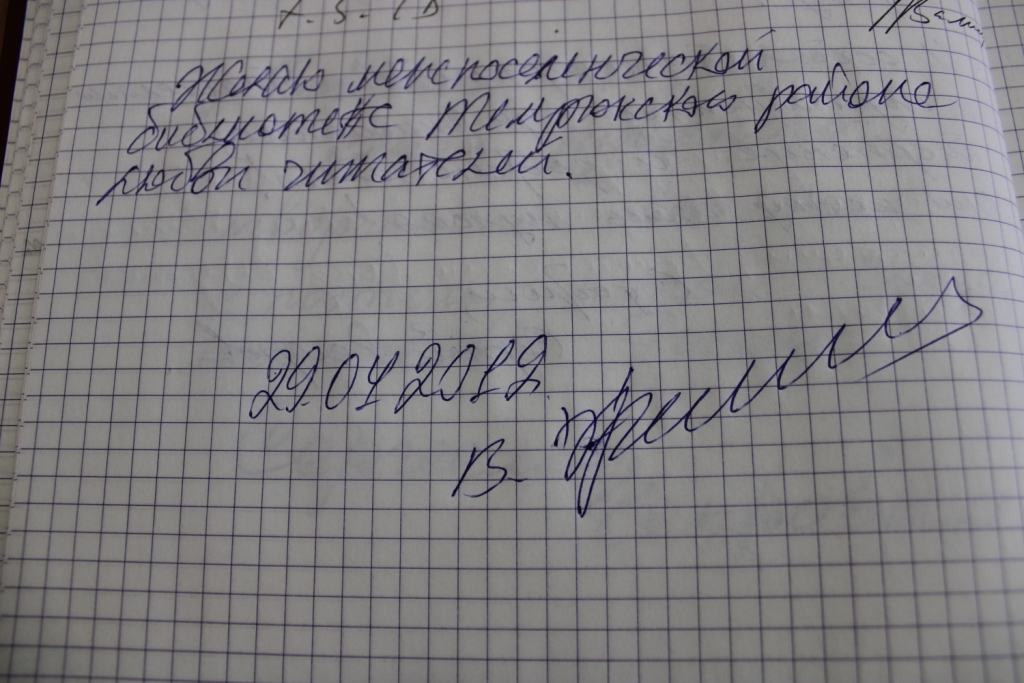 Желаю межпоселенческой
библиотеке Темрюкского района
любви читателей.
29.04 2012
В.